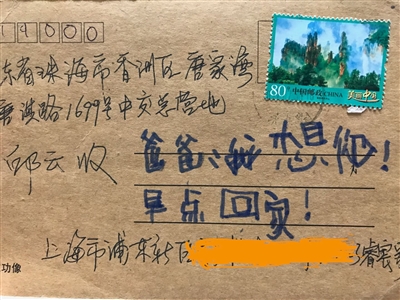 19000
东省珠海市香洲区唐家湾
80分 中国邮政 CHINA 美丽中国
唐淇路1699号中交总营地
云 收
爸爸,我想你!
早点回家!
上海市浦东新区
功像